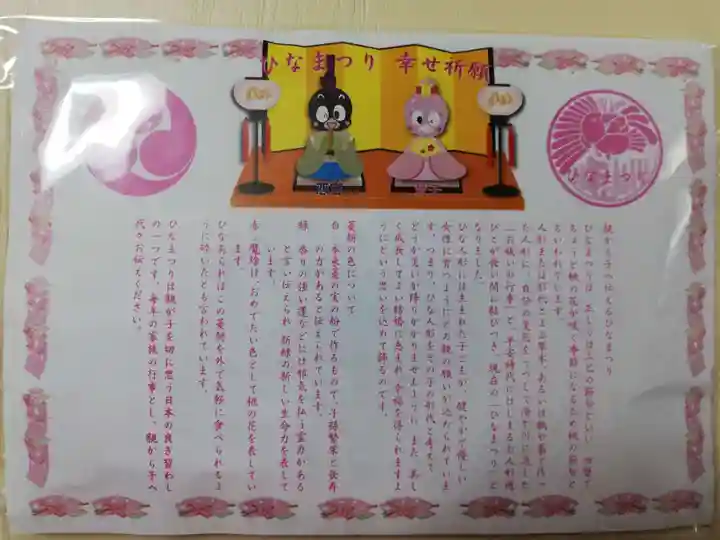 ひなまつり 幸せ祈願
ひなまつり
親から子へ伝えるひなまつり
ひなまつりは、正しくは上巳の節句といい、四季で
ちょうど桃の花が咲く季節になるため桃の節句と
もいわれています。
人形または形代とよぶ草木、あるいは紙や藁で作っ
た人形に、自分の災厄をうつして海や川に流した
「お祓いの行事」と、平安時代にはじまるお人形遊
びとが長い間に結びつき、現在の「ひなまつり」と
なりました。
ひな人形には生まれた子どもが、健やかで優しい
女性に育つようにと人親の願いが込められていま
す。つまり、ひな人形をその子の形代と考えて、
どうか災いが降りかかりませんように、また、美し
く成長してよい結婚に恵まれ、幸福を得られますよ
うにという思いを込めて飾るのです。
菱餅の色について
白 水草菱の実の粉で作るもので、子孫繁栄と長寿
の力があると伝えられています。
緑 香りの強い蓬などには邪気を払う霊力がある
と言い伝えられ、新緑の新しい生命力を表して
います。
赤 魔除け、おめでたい色として桃の花を表してい
ます。
ひなあられはこの菱餅を外で気軽に食べられるよ
うに砕いたとも言われています。
ひなまつりは親が子を切に思う日本の良き習わし
の一つです。毎年の家族の行事とし、親から子へ
代々お伝えください。